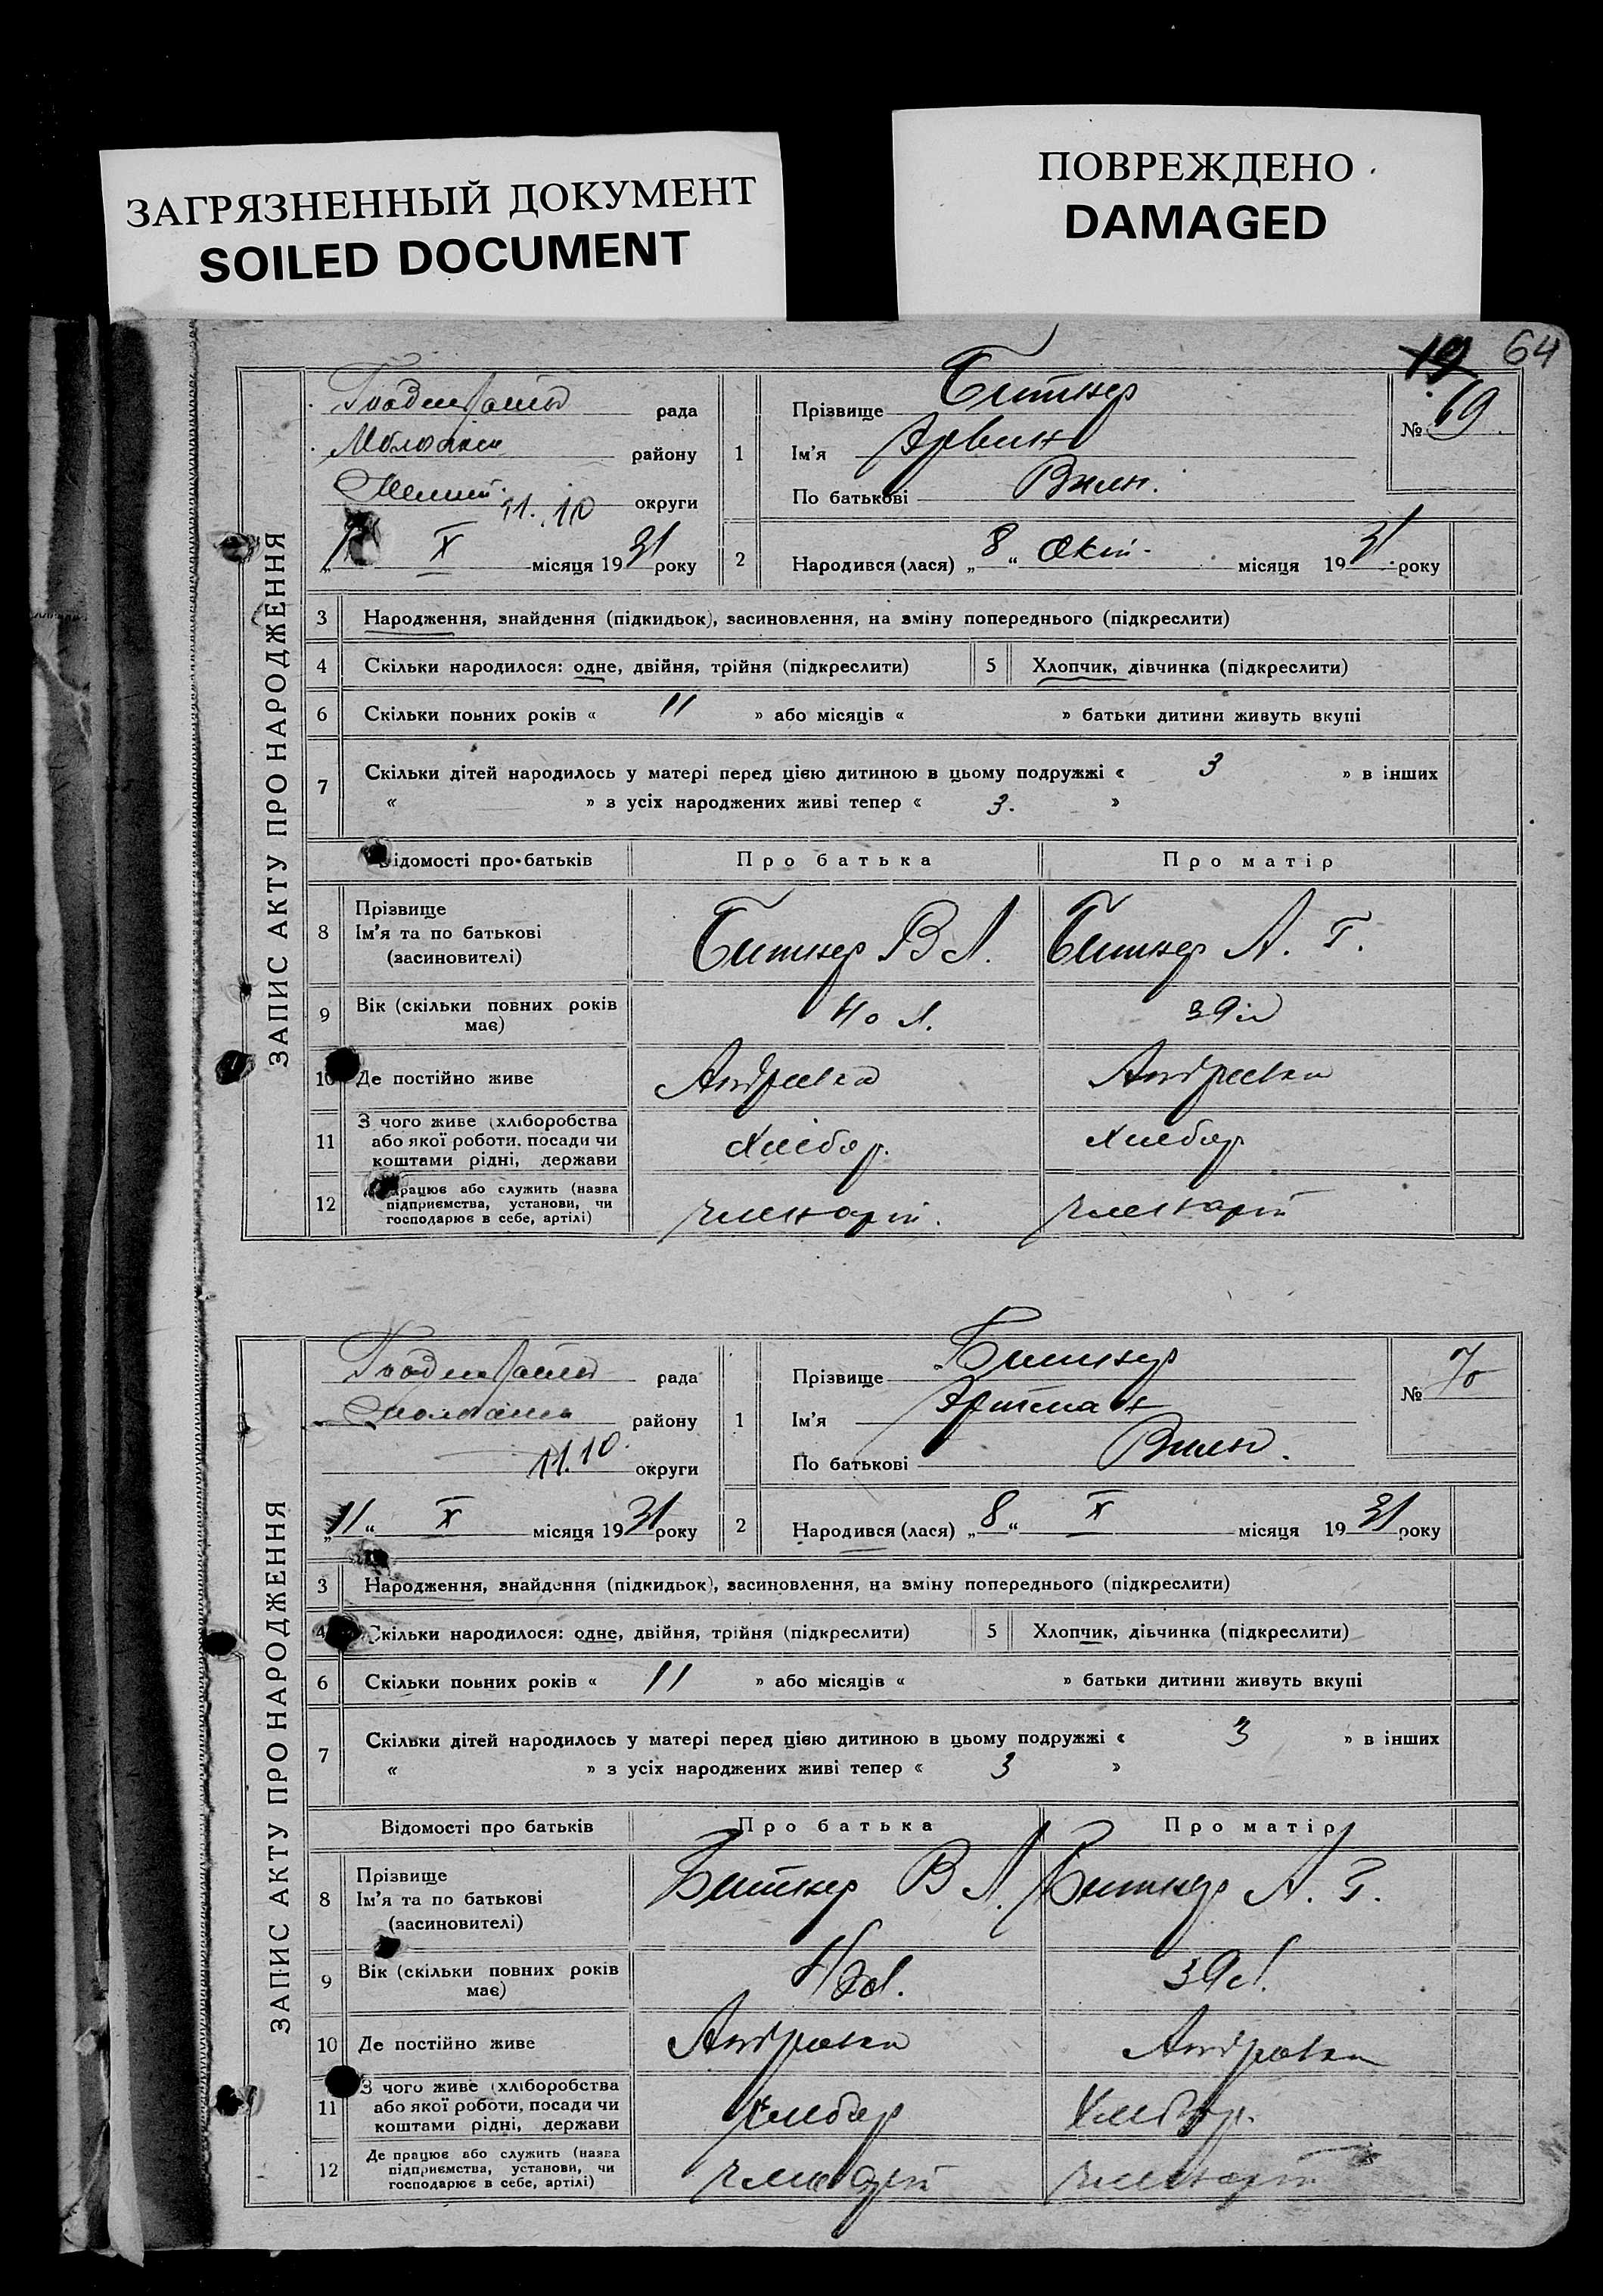 ЗАГРЯЗНЕННЫЙ ДОКУМЕНТ
SOILED DOCUMENT
ПОВРЕЖДЕНО
DAMAGED
19 64
ЗАПИС АКТУ ПРО НАРОДЖЕННЯ
рада
району
округи
11.10
X місяця 1931 року
1
Прізвище Битнер
Ім'я Эрвин
По батькові Вилн.
№ 69
2
Народився (лася) „8“ Окт. місяця 1931 року
3 Народження, знайдення (підкидьок), засиновлення, на зміну попереднього (підкреслити)
4 Скільки народилося: одне, двійня, трійня (підкреслити) 5 Хлопчик, дівчинка (підкреслити)
6 Скільки повних років « 11 » або місяців « » батьки дитини живуть вкупі
7 Скільки дітей народилось у матері перед цією дитиною в цьому подружжі « 3 » в інших
« » з усіх народжених живі тепер « 3. »
Відомості про батьків Про батька Про матір
8 Прізвище
Ім'я та по батькові
(засиновителі)
Битнер В Л. Битнер А. Г.
9 Вік (скільки повних років
має)
40 л. 39 л
10 Де постійно живе Андреевка Андреевка
11 З чого живе (хліборобства
або якої роботи, посади чи
коштами рідні, держави
Хлебор. Хлебор
12 працює або служить (назва
підприємства, установи, чи
господарює в себе, артілі)
член арт. член арт
ЗАПИС АКТУ ПРО НАРОДЖЕННЯ
рада
району
11.10. округи
„11“ X місяця 1931 року
1
Прізвище Битнер
Ім'я Артман
По батькові Вилн.
№ 70
2
Народився (лася) „8“ X місяця 1931 року
3 Народження, знайдення (підкидьок), засиновлення, на зміну попереднього (підкреслити)
4 Скільки народилося: одне, двійня, трійня (підкреслити) 5 Хлопчик, дівчинка (підкреслити)
6 Скільки повних років « 11 » або місяців « » батьки дитини живуть вкупі
7 Скільки дітей народилось у матері перед цією дитиною в цьому подружжі « 3 » в інших
« » з усіх народжених живі тепер « 3 »
Відомості про батьків Про батька Про матір
8 Прізвище
Ім'я та по батькові
(засиновителі)
Битнер В Л. Битнер А. Г.
9 Вік (скільки повних років
має)
40 л. 39 л.
10 Де постійно живе Андровка Андровка
11 З чого живе (хліборобства
або якої роботи, посади чи
коштами рідні, держави
Хлебор Хлебор.
12 Де працює або служить (назва
підприємства, установи, чи
господарює в себе, артілі)
член арт член арт